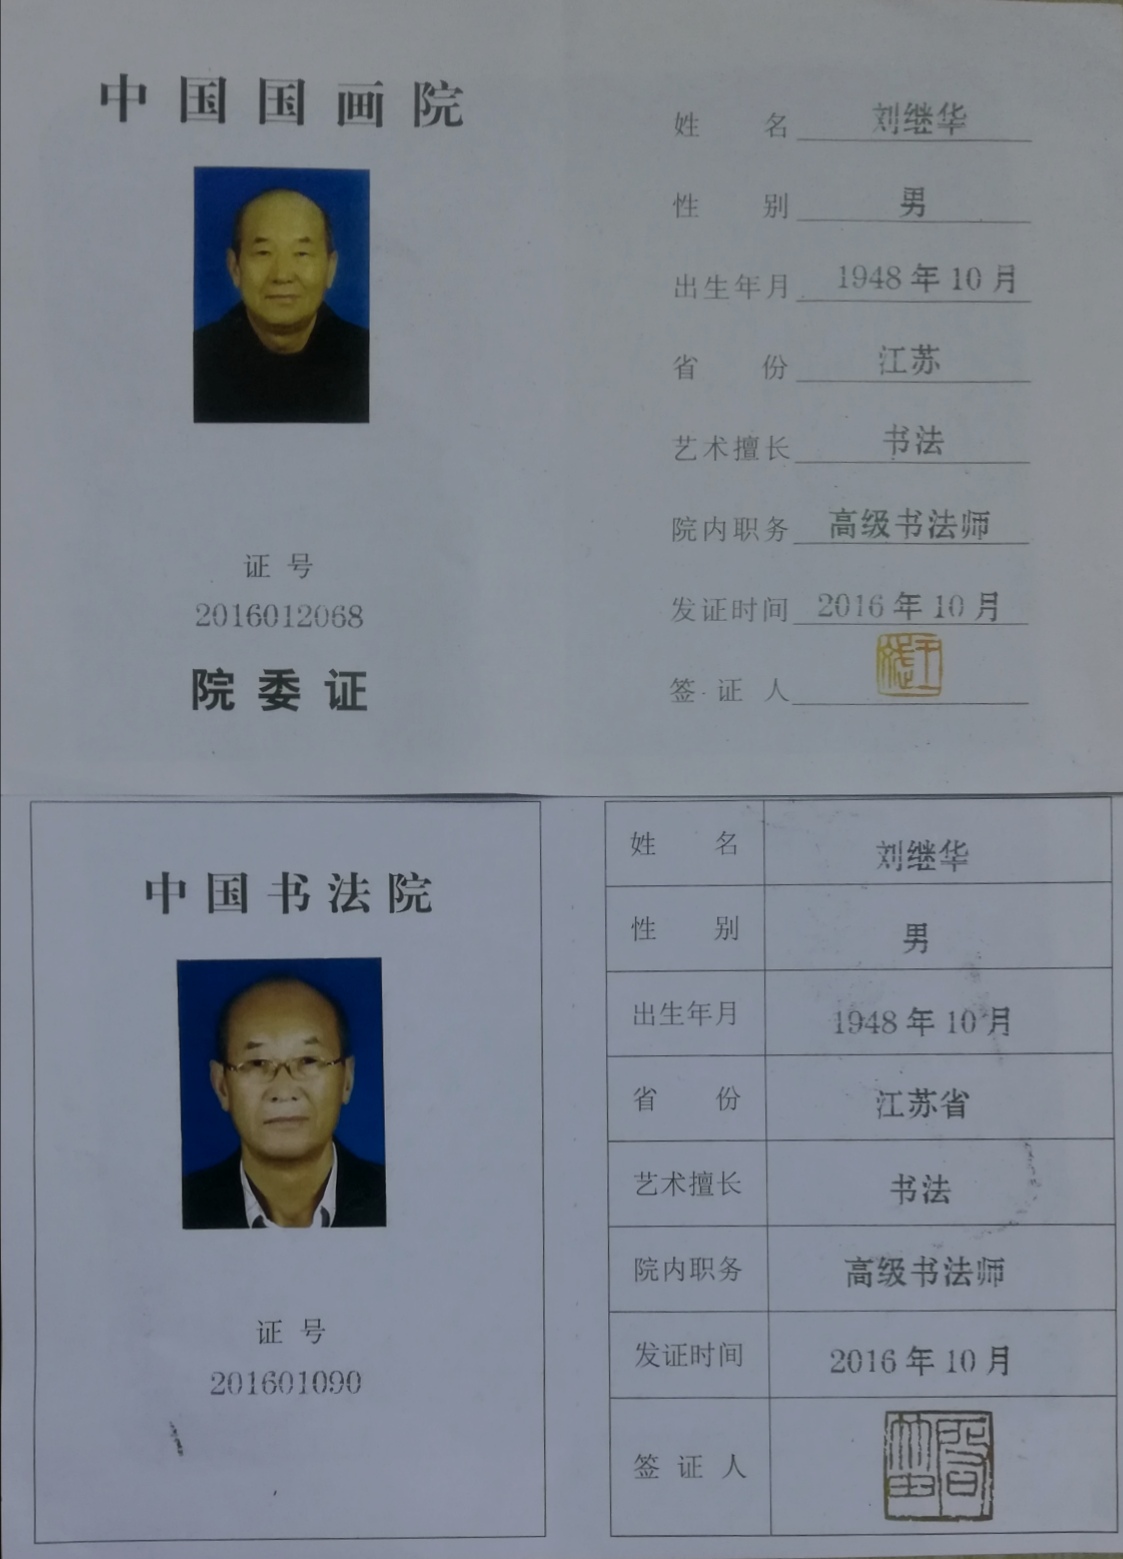 中国国画院
证号
2016012068
院委证
姓名 刘继华
性别 男
出生年月 1948年10月
省份 江苏
艺术擅长 书法
院内职务 高级书法师
发证时间 2016年10月
签证人
中国书法院
证号
201601090
姓名 刘继华
性别 男
出生年月 1948年10月
省份 江苏省
艺术擅长 书法
院内职务 高级书法师
发证时间 2016年10月
签证人